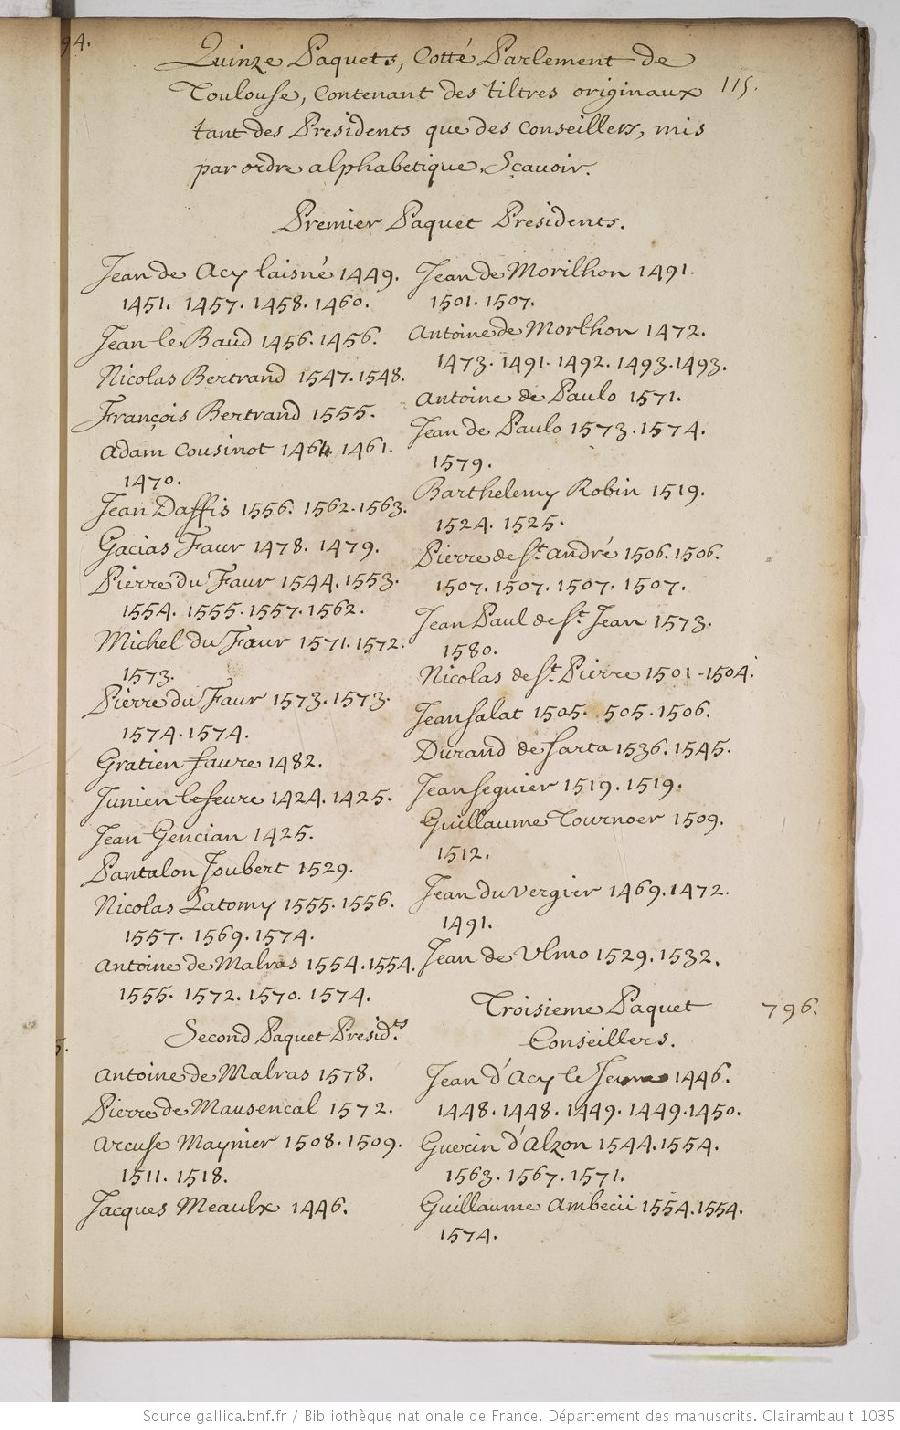 94.
Quinze Paquets, Cotté Parlement de
Toulouse, Contenant des tiltres originaux
115.
tant des Presidents que des Conseillers, mis
par ordre alphabetique Sçavoir.
Premier Paquet Presidents.
Jean de Acy laisné 1449.
1451. 1457. 1458. 1460.
Jean le Baud 1456. 1456.
Nicolas Bertrand 1547. 1548.
François Bertrand 1555.
Adam Cousinot 1464. 1461.
1470.
Jean Daffis 1556. 1562. 1563.
Gacias Faur 1478. 1479.
Pierre du Faur 1544. 1553.
1554. 1555. 1557. 1562.
Michel du Faur 1571. 1572.
1573.
Pierre du Faur 1573. 1573.
1574. 1574.
Gratien faure 1482.
Junien lefeure 1424. 1425.
Jean Gencian 1425.
Pantalon Joubert 1529.
Nicolas Latomy 1555. 1556.
1557. 1569. 1574.
Antoine de Malras 1554. 1554.
1555. 1572. 1570. 1574.
Second Paquet Presid.ts
5.
Antoine de Malras 1578.
Pierre de Mausencal 1572.
Arcuse Maynier 1508. 1509.
1511. 1518.
Jacques Meaulx 1446.
Jean de Morilhon 1491.
1501. 1507.
Antoine de Morlhon 1472.
1473. 1491. 1492. 1493. 1493.
Antoine de Paulo 1571.
Jean de Paulo 1573. 1574.
1579.
Barthelemy Robin 1519.
1524. 1525.
Pierre de St. André 1506. 1506.
1507. 1507. 1507. 1507.
Jean Paul de St. Jean 1573.
1580.
Nicolas de St. Pierre 1501 - 1504.
Jean salat 1505. 505. 1506.
Durand de sarta 1536. 1545.
Jean seguier 1519. 1519.
Guillaume Tournoer 1509.
1512.
Jean du vergier 1469. 1472.
1491.
Jean de Vlmo 1529. 1532.
Troisieme Paquet
796.
Conseillers.
Jean d'Acy le Jeune 1446.
1448. 1448. 1449. 1449. 1450.
Guerin d'Alzon 1544. 1554.
1563. 1567. 1571.
Guillaume Ambecii 1554. 1554.
1574.
Source gallica.bnf.fr / Bibliothèque nationale de France. Département des manuscrits. Clairambault 1035